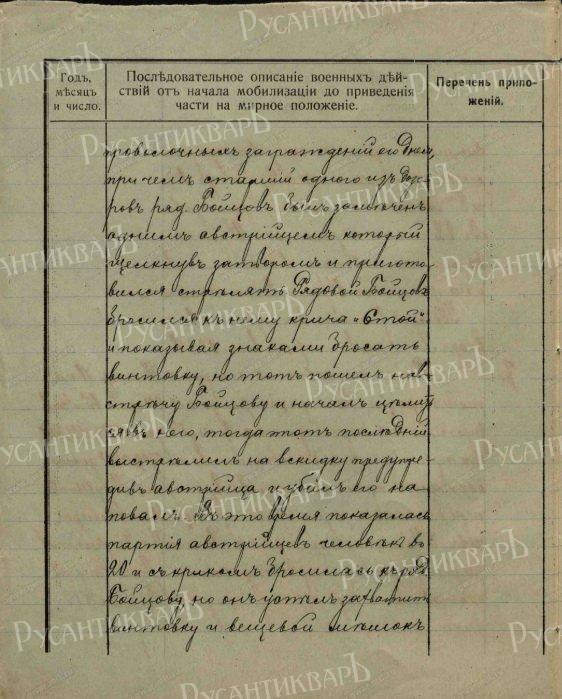 Годъ, мѣсяцъ и число.
Послѣдовательное описаніе военныхъ дѣй-
ствій отъ начала мобилизаціи до приведенія
части на мирное положеніе.
Перечень прило-
женій.
проволочныхъ загражденій его днемъ,
при чемъ старшій одного изъ дозо-
ровъ ряд. Бойцовъ былъ замѣченъ
однимъ австрійцемъ который
щелкнувъ затворомъ и пригото-
вился стрѣлять. Рядовой Бойцовъ
бросился къ нему крича „Стой"
и показывая знаками бросать
винтовку, но тотъ пошелъ на
встрѣчу Бойцову и началъ цѣлить
ся въ него, тогда этотъ послѣдній
выстрѣлилъ на вскидку предупре-
дивъ австрійца и убилъ его на
повалъ. Въ это время показалась
партія австрійцевъ человѣкъ въ
20 и съ крикомъ бросилась къ ряд.
Бойцову, но онъ успѣлъ захватить
винтовку и вещевой мѣшокъ
РУСАНТИКВАРЪ